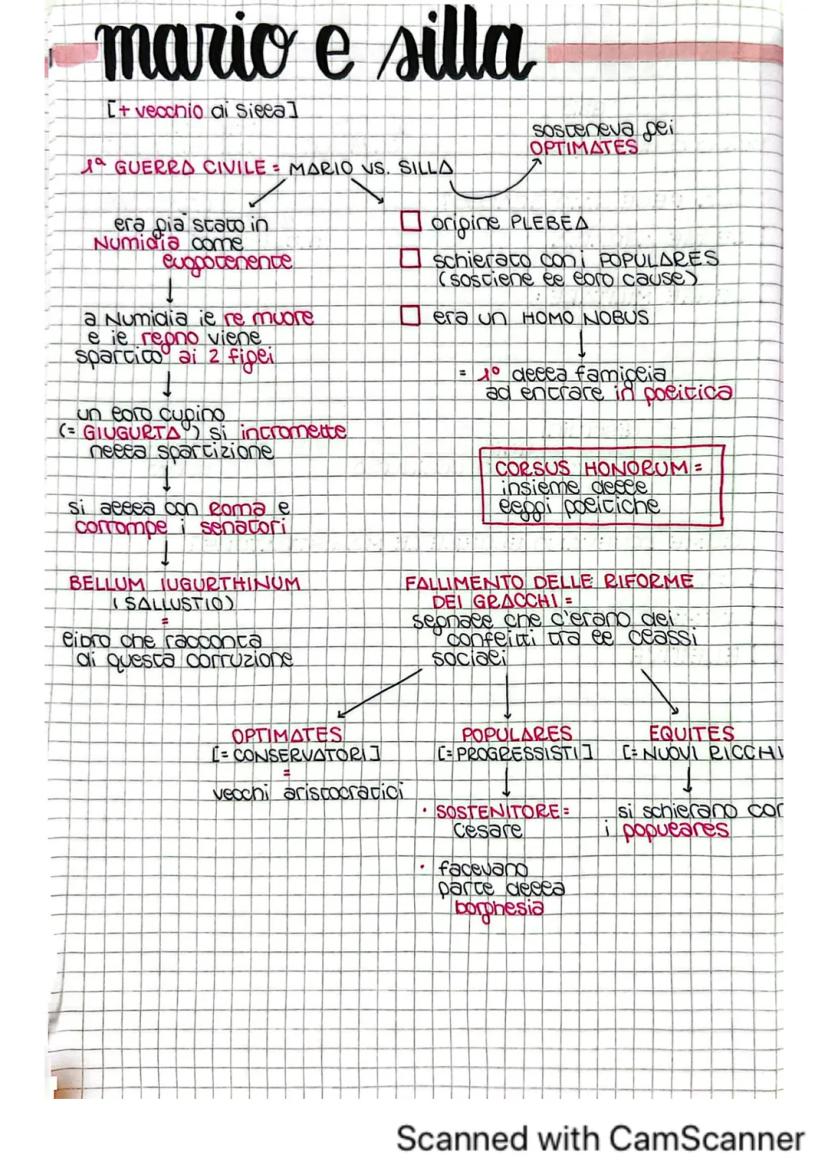 mario e silla
[+ vecchio di Silla]
sosteneva gli
OPTIMATES
1ª GUERRA CIVILE = MARIO VS. SILLA
era già stato in
Numidia come
luogotenente
a Numidia il re muore
e il regno viene
spartito ai 2 figli
un loro cugino
(= GIUGURTA) si intromette
nella spartizione
si allea con Roma e
corrompe i senatori
BELLUM IUGURTHINUM
(SALLUSTIO)
=
libro che racconta
di questa corruzione
origine PLEBEA
schierato con i POPULARES
(sostiene le loro cause)
era un HOMO NOBUS
= 1º della famiglia
ad entrare in politica
CORSUS HONORUM =
insieme delle
leggi politiche
FALLIMENTO DELLE RIFORME
DEI GRACCHI =
segnale che c'erano dei
conflitti tra le classi
sociali
OPTIMATES
[= CONSERVATORI]
=
vecchi aristocratici
POPULARES
[= PROGRESSISTI]
• SOSTENITORE =
Cesare
• facevano
parte della
borghesia
EQUITES
[= NUOVI RICCHI
si schierano con
i populares
Scanned with CamScanner